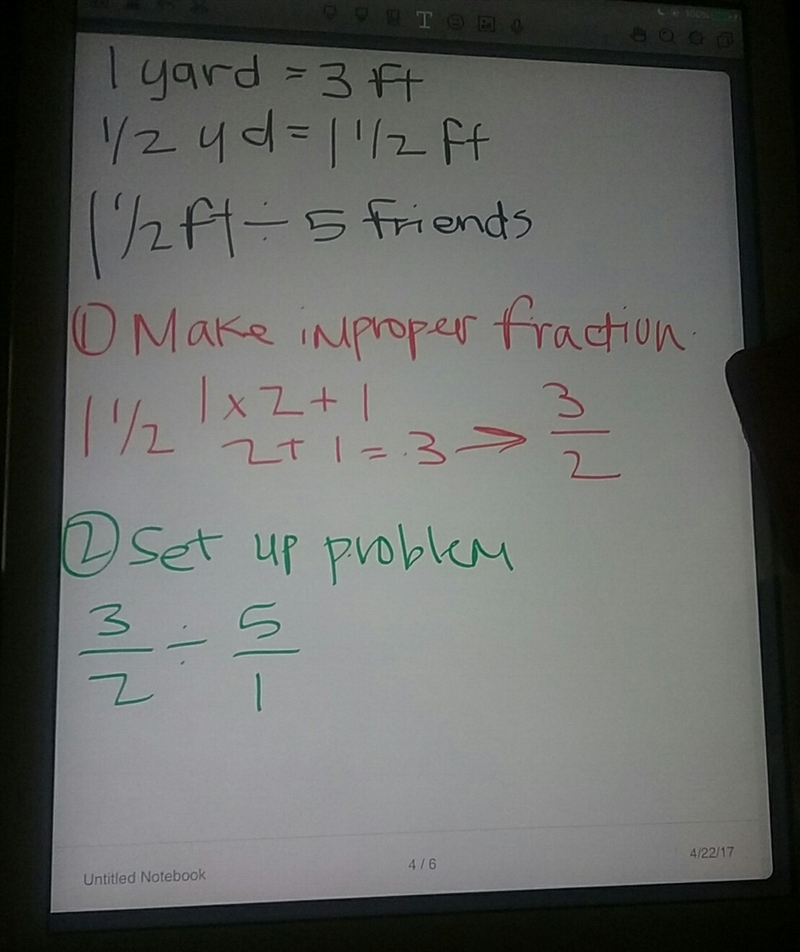 1 yard = 3 ft
1/2 yd = 1 1/2 ft
1 1/2 ft ÷ 5 friends
① Make improper fraction.
1 1/2 1 x 2 + 1
2 + 1 = 3 → 3/2
② Set up problem
3/2 ÷ 5/1
Untitled Notebook 4 / 6 4/22/17